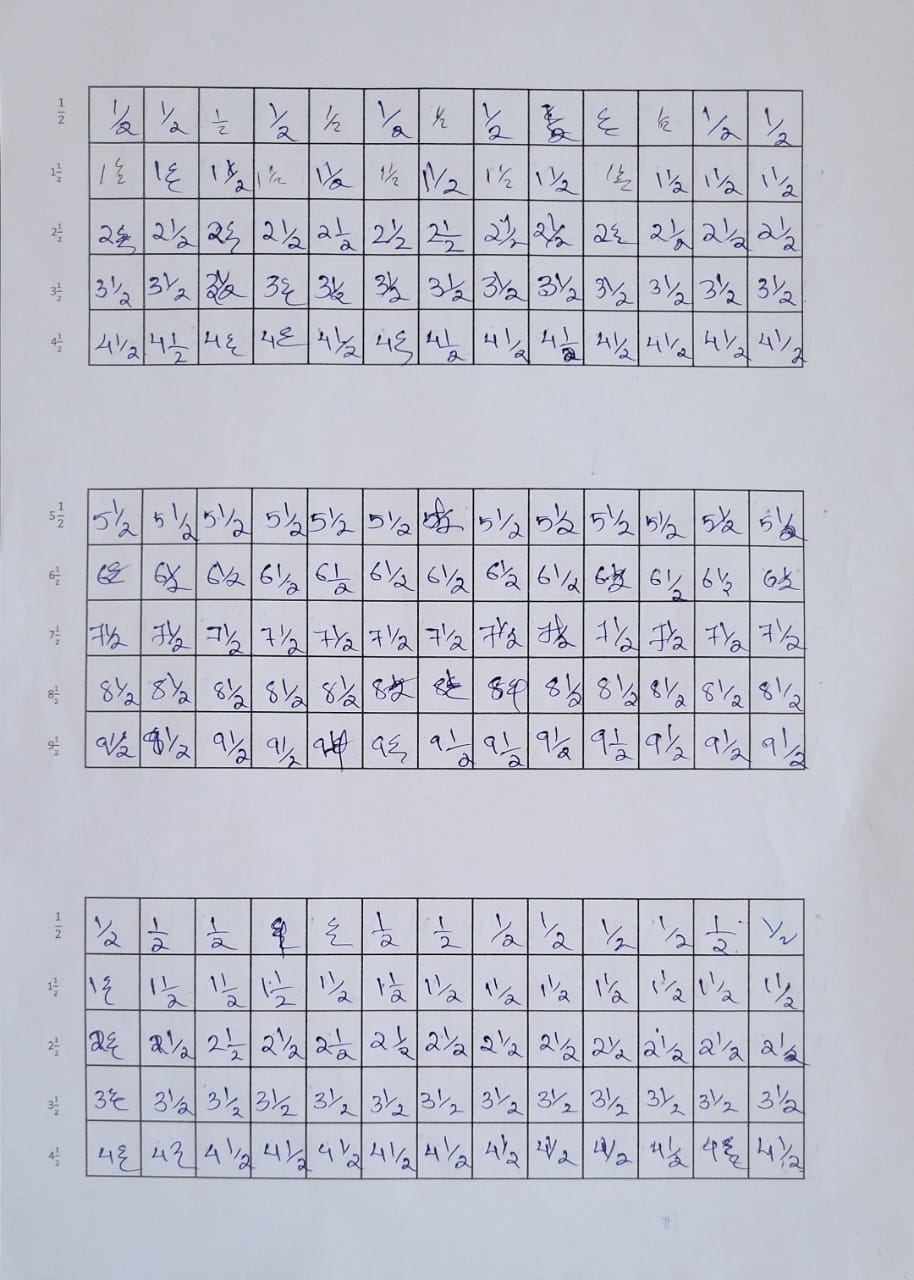 1/2 1/2 1/2 1/2 1/2 1/2 1/2 1/2 1/2 1/2 1/2 1/2 1/2 1/2
1 1/2 1 1/2 1 1/2 1 1/2 1 1/2 1 1/2 1 1/2 1 1/2 1 1/2 1 1/2 1 1/2 1 1/2 1 1/2 1 1/2
2 1/2 2 1/2 2 1/2 2 1/2 2 1/2 2 1/2 2 1/2 2 1/2 2 1/2 2 1/2 2 1/2 2 1/2 2 1/2 2 1/2
3 1/2 3 1/2 3 1/2 3 1/2 3 1/2 3 1/2 3 1/2 3 1/2 3 1/2 3 1/2 3 1/2 3 1/2 3 1/2 3 1/2
4 1/2 4 1/2 4 1/2 4 1/2 4 1/2 4 1/2 4 1/2 4 1/2 4 1/2 4 1/2 4 1/2 4 1/2 4 1/2 4 1/2
5 1/2 5 1/2 5 1/2 5 1/2 5 1/2 5 1/2 5 1/2 5 1/2 5 1/2 5 1/2 5 1/2 5 1/2 5 1/2
6 1/2 6 1/2 6 1/2 6 1/2 6 1/2 6 1/2 6 1/2 6 1/2 6 1/2 6 1/2 6 1/2 6 1/2 6 1/2 6 1/2
7 1/2 7 1/2 7 1/2 7 1/2 7 1/2 7 1/2 7 1/2 7 1/2 7 1/2 7 1/2 7 1/2 7 1/2 7 1/2 7 1/2
8 1/2 8 1/2 8 1/2 8 1/2 8 1/2 8 1/2 8 1/2 8 1/2 8 1/2 8 1/2 8 1/2 8 1/2
9 1/2 9 1/2 9 1/2 9 1/2 9 1/2 9 1/2 9 1/2 9 1/2 9 1/2 9 1/2 9 1/2 9 1/2
1/2 1/2 1/2 1/2 1/2 1/2 1/2 1/2 1/2 1/2 1/2 1/2 1/2
1 1/2 1 1/2 1 1/2 1 1/2 1 1/2 1 1/2 1 1/2 1 1/2 1 1/2 1 1/2 1 1/2 1 1/2 1 1/2 1 1/2
2 1/2 2 1/2 2 1/2 2 1/2 2 1/2 2 1/2 2 1/2 2 1/2 2 1/2 2 1/2 2 1/2 2 1/2 2 1/2 2 1/2
3 1/2 3 1/2 3 1/2 3 1/2 3 1/2 3 1/2 3 1/2 3 1/2 3 1/2 3 1/2 3 1/2 3 1/2 3 1/2 3 1/2
4 1/2 4 1/2 4 1/2 4 1/2 4 1/2 4 1/2 4 1/2 4 1/2 4 1/2 4 1/2 4 1/2 4 1/2 4 1/2 4 1/2